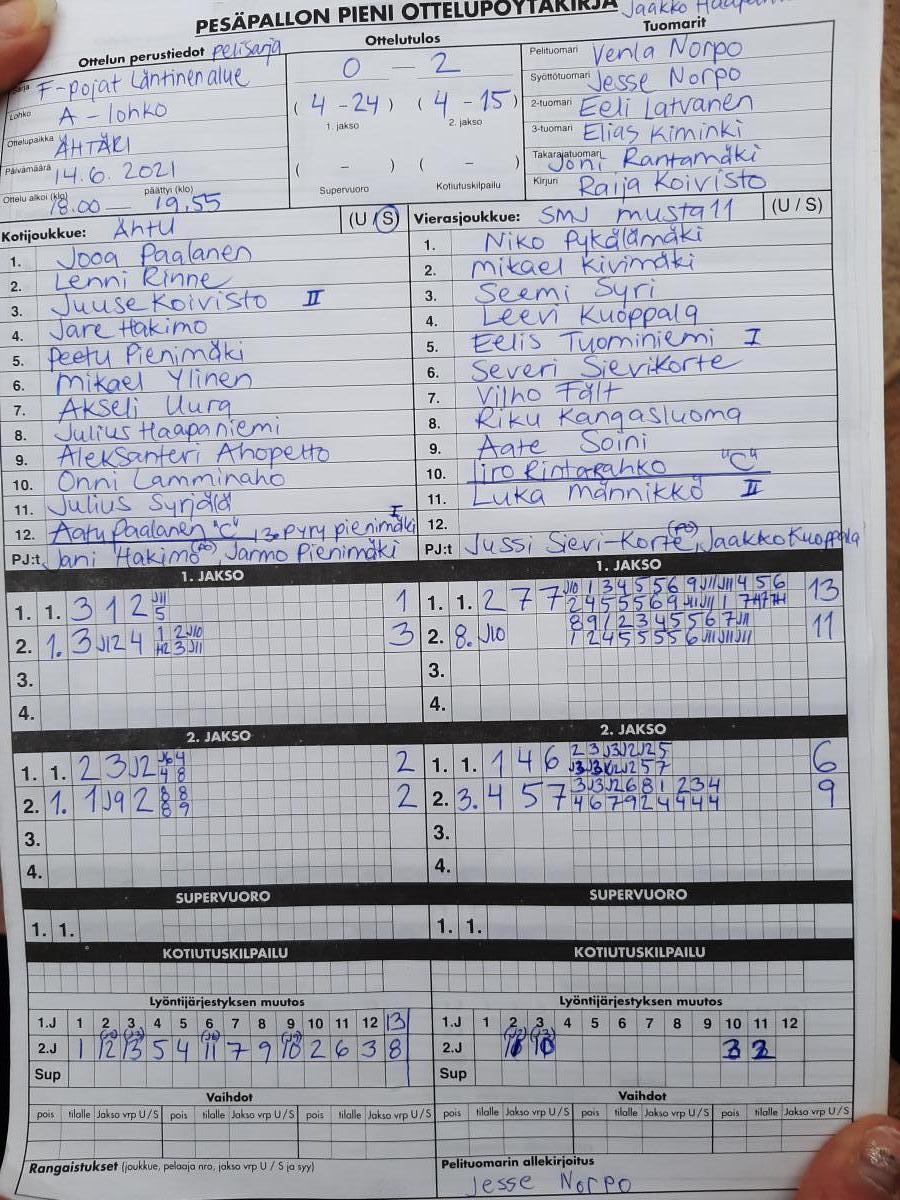 PESÄPALLON PIENI OTTELUPÖYTÄKIRJA Jaakko
Ottelun perustiedot pelisarja
Sarja F-pojat Läntinen alue
Lohko A-lohko
Ottelupaikka ÄHTÄRI
Päivämäärä 14.6.2021
Ottelu alkoi (klo) päättyi (klo)
18.00 — 19.55
Ottelutulos
0 — 2
(4 - 24) (4 - 15)
1. jakso 2. jakso
( - ) ( - )
Supervuoro Kotiutuskilpailu
Tuomarit
Pelituomari Venla Norpo
Syöttötuomari Jesse Norpo
2-tuomari Eeli Latvanen
3-tuomari Elias Kiminki
Takarajatuomari Joni Rantamäki
Kirjuri Raija Koivisto
Kotijoukkue: ÄhtU (U / S)
1. Jooa Paalanen
2. Lenni Rinne
3. Juuse Koivisto II
4. Jare Hakimo
5. Peetu Pienimäki
6. Mikael Ylinen
7. Akseli Uura
8. Julius Haapaniemi
9. Aleksanteri Ahopelto
10. Onni Lamminaho
11. Julius Syrjälä
12. Aatu Paalanen "C", 13. Pyry Pienimäki I
PJ:t Jani Hakimo (PJ), Jarmo Pienimäki
Vierasjoukkue: SMJ musta 11 (U / S)
1. Niko Pykälämäki
2. Mikael Kivimäki
3. Seemi Syri
4. Leevi Kuoppala
5. Eelis Tuominiemi I
6. Severi Sievikorte
7. Vilho Fält
8. Riku Kangasluoma
9. Aate Soini
10. Iiro Rintarahko "C"
11. Luka Männikkö II
12.
PJ:t Jussi Sievi-Korte (PJ), Jaakko Kuoppala
1. JAKSO
1. 1. 3 1 2 J11 1
5
2. 1. 3 J12 4 1 2 J10 3
H2 3 J11
3.
4.
1. JAKSO
1. 1. 2 7 7 J10 1 3 4 5 5 6 9 J11 J11 4 5 6 13
2 4 5 5 5 6 9 J11 J11 1 7 H7 7H
2. 8. J10 8 9 1 2 3 4 5 5 6 7 J11 11
1 2 4 5 5 5 6 J11 J11 J11
3.
4.
2. JAKSO
1. 1. 2 3 J2 J6 4 2
4 8
2. 1. 1 J9 2 8 8 2
8 9
3.
4.
2. JAKSO
1. 1. 1 4 6 2 3 J3 J2 J2 5 6
2 5 7
2. 3. 4 5 7 3 J3 J2 6 8 1 2 3 4 9
4 6 7 9 2 4 4 4 4
3.
4.
SUPERVUORO
1. 1.
SUPERVUORO
1. 1.
KOTIUTUSKILPAILU
KOTIUTUSKILPAILU
Lyöntijärjestyksen muutos
1.J 1 2 3 4 5 6 7 8 9 10 11 12 13
2.J 1 12 13 5 4 11 7 9 10 2 6 3 8
Sup
Lyöntijärjestyksen muutos
1.J 1 2 3 4 5 6 7 8 9 10 11 12
2.J 10 3 2
Sup
Vaihdot
pois tilalle Jakso vrp U / S pois tilalle Jakso vrp U / S pois tilalle Jakso vrp U / S
Vaihdot
pois tilalle Jakso vrp U / S pois tilalle Jakso vrp U / S pois tilalle Jakso vrp U / S
Rangaistukset (joukkue, pelaaja nro, jakso vrp U / S ja syy)
Pelituomarin allekirjoitus
Jesse Norpo